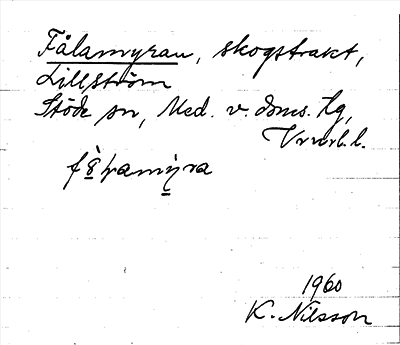 Fålamyran, skogstrakt,
Lillström
Stöde sn, Med. v. doms. tg,
Vnorrl. l.
1960
K. Nilsson